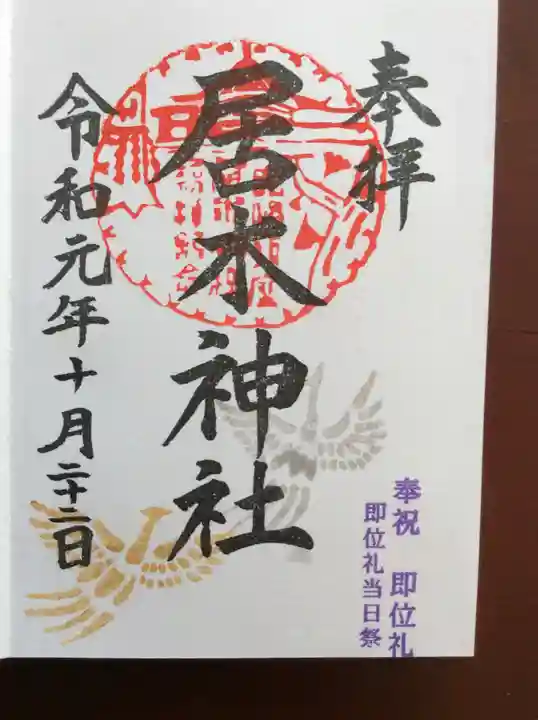 奉拝
居木神社
令和元年十月二十二日
奉祝 即位礼
即位礼当日祭